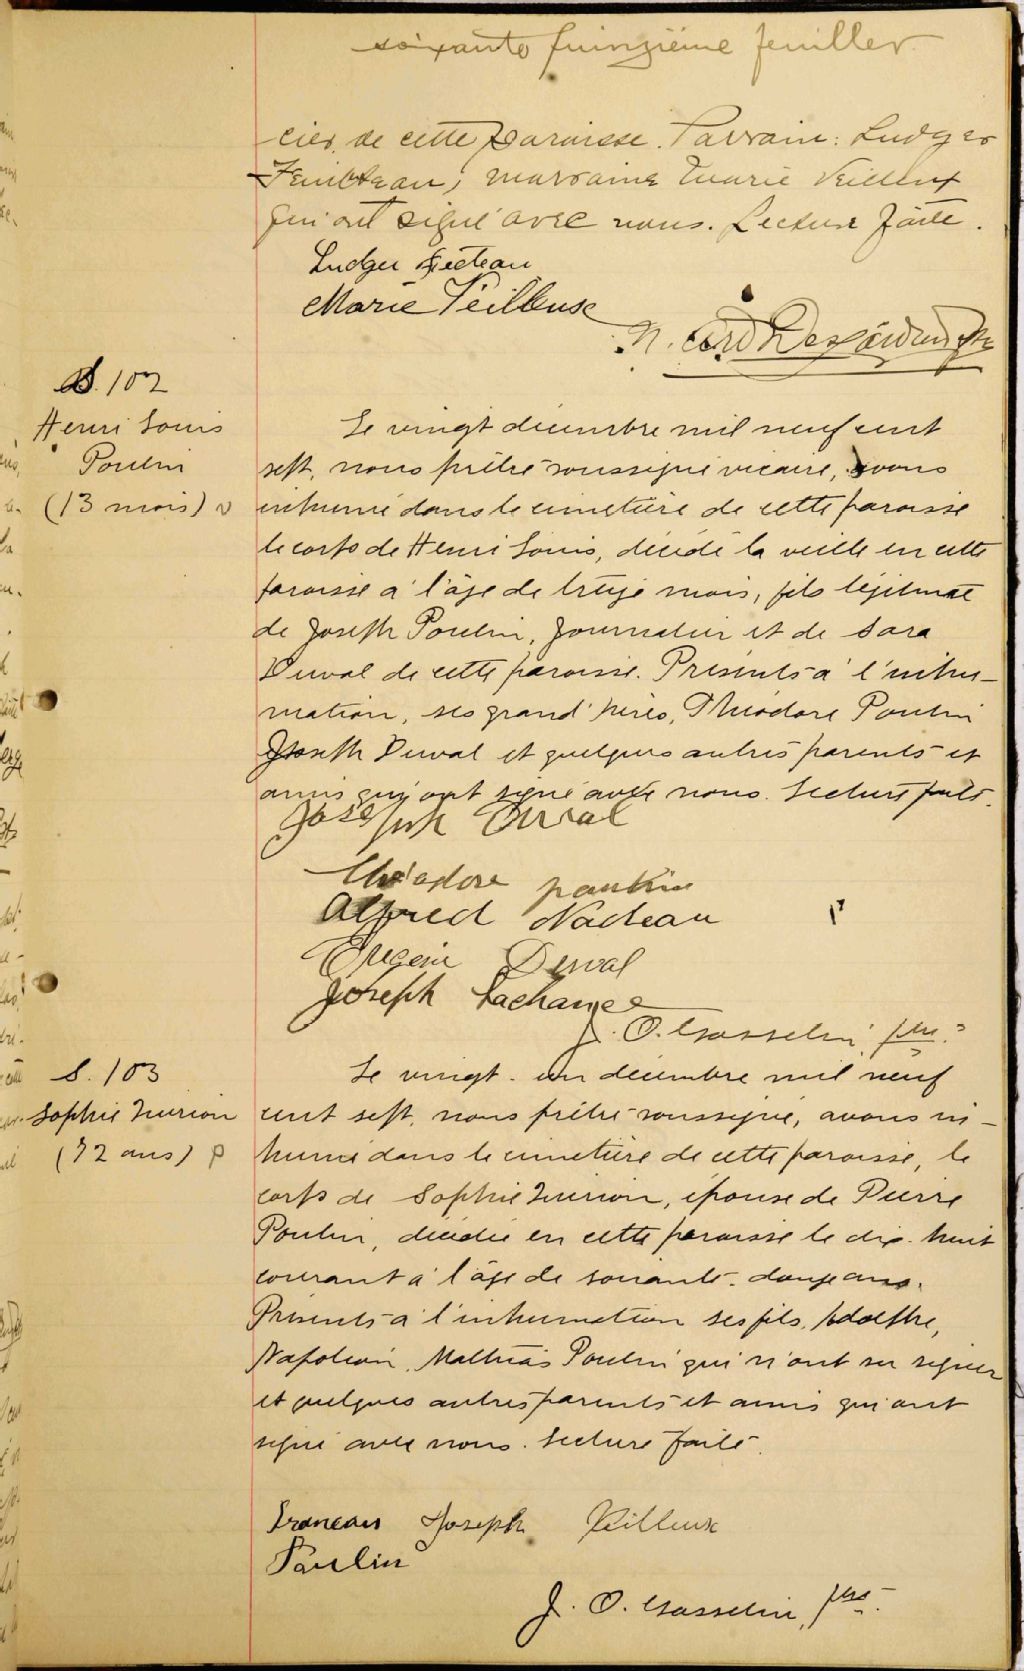 soixante quinzième feuillet
cier de cette paroisse. Parrain: Ludger
marraine Marie Veilleux
qui ont signé avec nous. Lecture faite.
Ludger Fecteau
Marie Veilleux
S. 102
Henri Louis
Poulin
(13 mois)
Le vingt décembre mil neuf cent
sept, nous prêtre soussigné vicaire, avons
inhumé dans le cimetière de cette paroisse
le corps de Henri Louis, décédé la veille en cette
paroisse à l'âge de treize mois, fils légitime
de Joseph Poulin, journalier et de Sara
Duval de cette paroisse. Présents à l'inhu-
mation, ses grand'pères, Théodore Poulin
Joseph Duval et quelques autres parents et
amis qui ont signé avec nous. Lecture faite.
Joseph Duval
Théodore
Alfred Nadeau
Duval
Joseph Lachance
J. O. Gosselin, ptre.
S. 103
Sophie
(72 ans)
Le vingt-un décembre mil neuf
cent sept, nous prêtre soussigné, avons in-
humé dans le cimetière de cette paroisse, le
corps de Sophie épouse de Pierre
Poulin, décédée en cette paroisse le dix-huit
courant à l'âge de soixante-douze ans.
Présents à l'inhumation ses fils, Adolphe,
Napoléon, Mathias Poulin qui n'ont su signer
et quelques autres parents et amis qui ont
signé avec nous. Lecture faite.
Joseph Veilleux
Poulin
J. O. Gosselin, ptre.